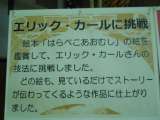 エリック・カールに挑戦
絵本「はらぺこあおむし」の絵を
鑑賞して、エリック・カールさんの
技法に挑戦しました。
どの絵も、見ているだけでストーリー
が伝わってくるような作品に仕上がり
ました。